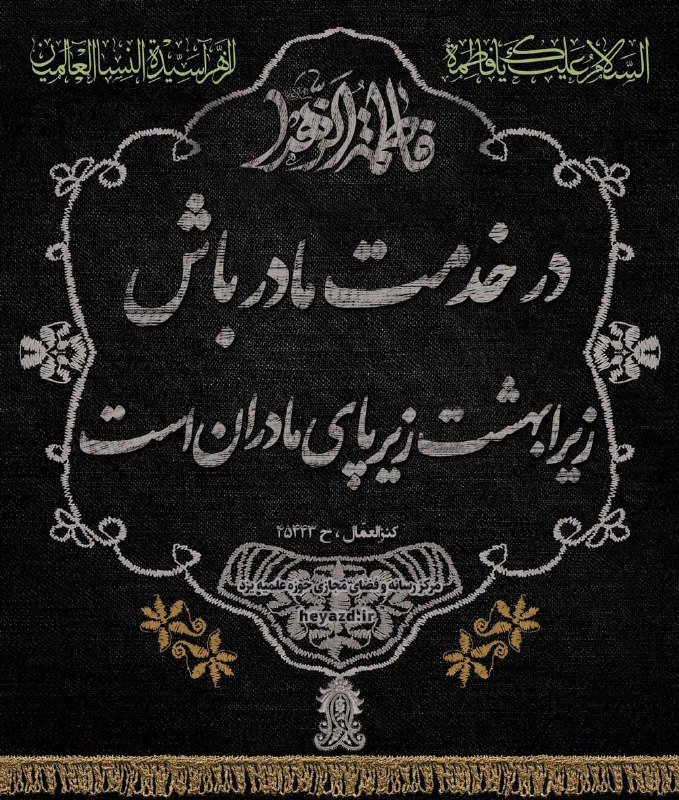 السلام علیک یا فاطمة
الزهرا سیدة النسا العالمین
فاطمة الزهرا
در خدمت مادر باش
زیرا بهشت زیر پای مادران است
کنزالعمّال ، ح ۴۵۴۴۳
مرکز رسانه و فضای مجازی حوزه علمیه یزد
heyazd.ir